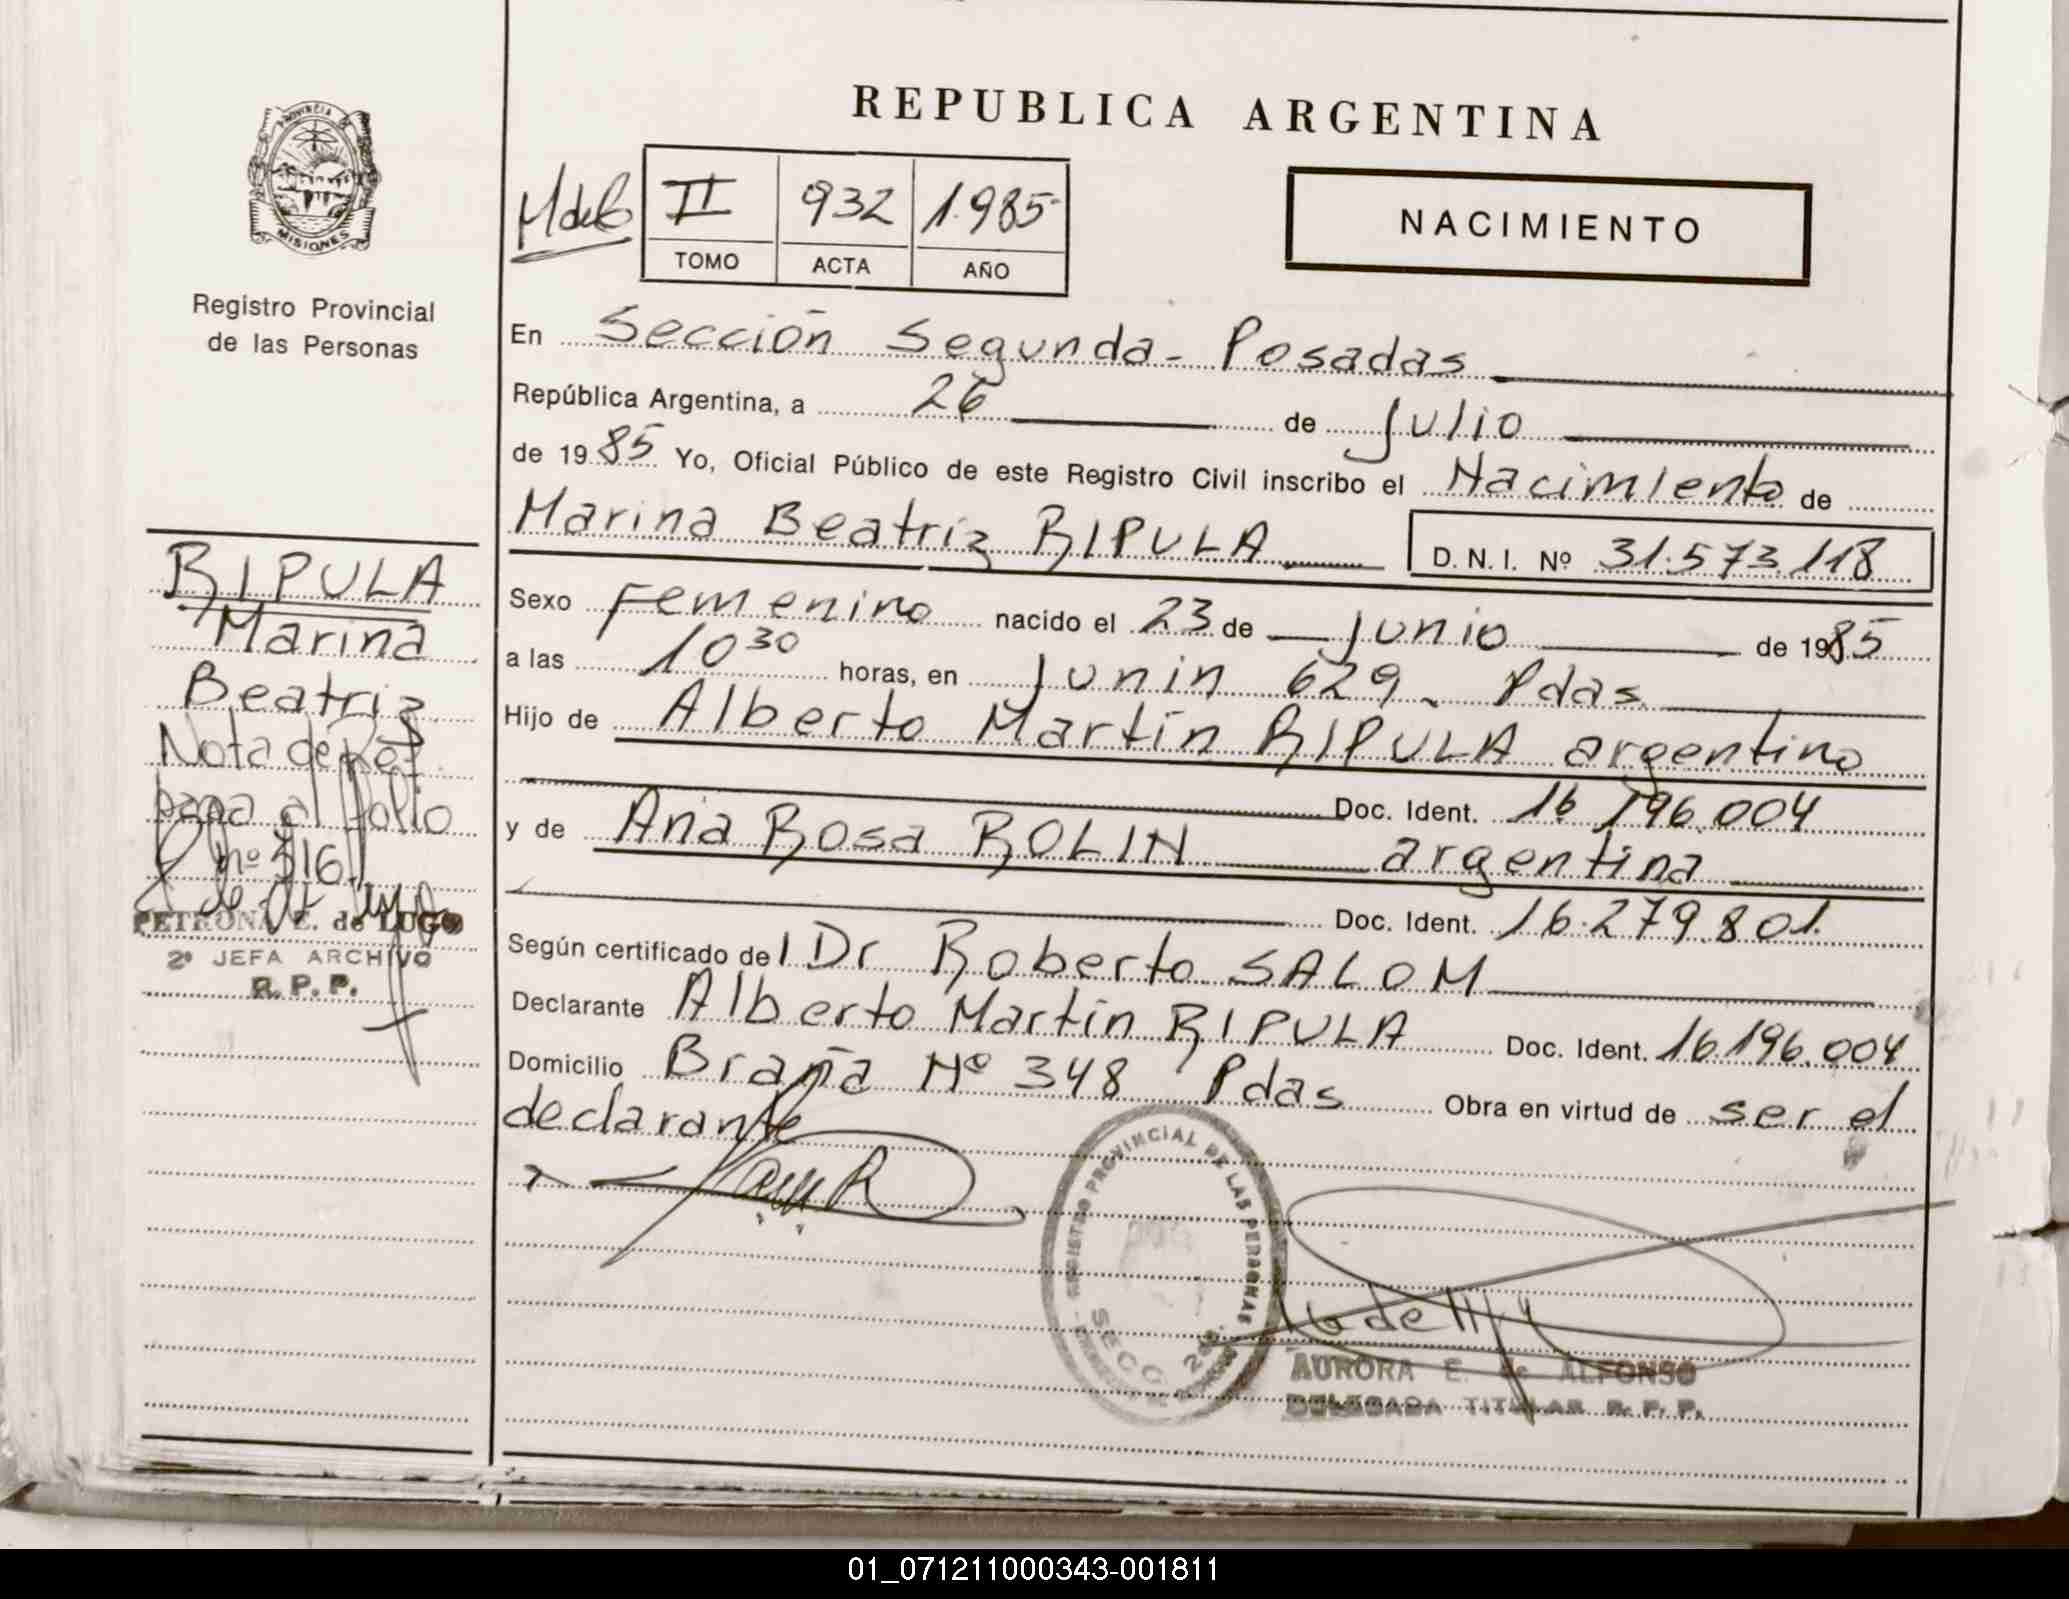 REPUBLICA ARGENTINA
PROVINCIA DE
MISIONES
Registro Provincial
de las Personas
II 932 1.985
TOMO ACTA AÑO
NACIMIENTO
En Sección Segunda - Posadas
República Argentina, a 26 de Julio
de 1985 Yo, Oficial Público de este Registro Civil inscribo el Nacimiento de
Marina Beatriz RIPULA D. N. I. Nº 31.573.118
Sexo Femenino nacido el 23 de Junio de 1985
a las 10 30 horas, en Junin 629 - Pdas.
Hijo de Alberto Martín RIPULA argentino
Doc. Ident. 16.196.004
y de Ana Rosa ROLIN argentina
Doc. Ident. 16.279.801.
Según certificado del Dr Roberto SALOM
Declarante Alberto Martín RIPULA Doc. Ident. 16.196.004
Domicilio Braña Nº 348 Pdas Obra en virtud de ser el
declarante
RIPULA
Marina
Beatriz
Nota de Ref.
al folio
nº 316
PETRONA E. de LUGO
2º JEFA ARCHIVO
R. P. P.
REGISTRO PROVINCIAL DE LAS PERSONAS
SECC. 2da.
AURORA E. de ALFONSO
DELEGADA TITULAR R. P. P.
01_071211000343-001811